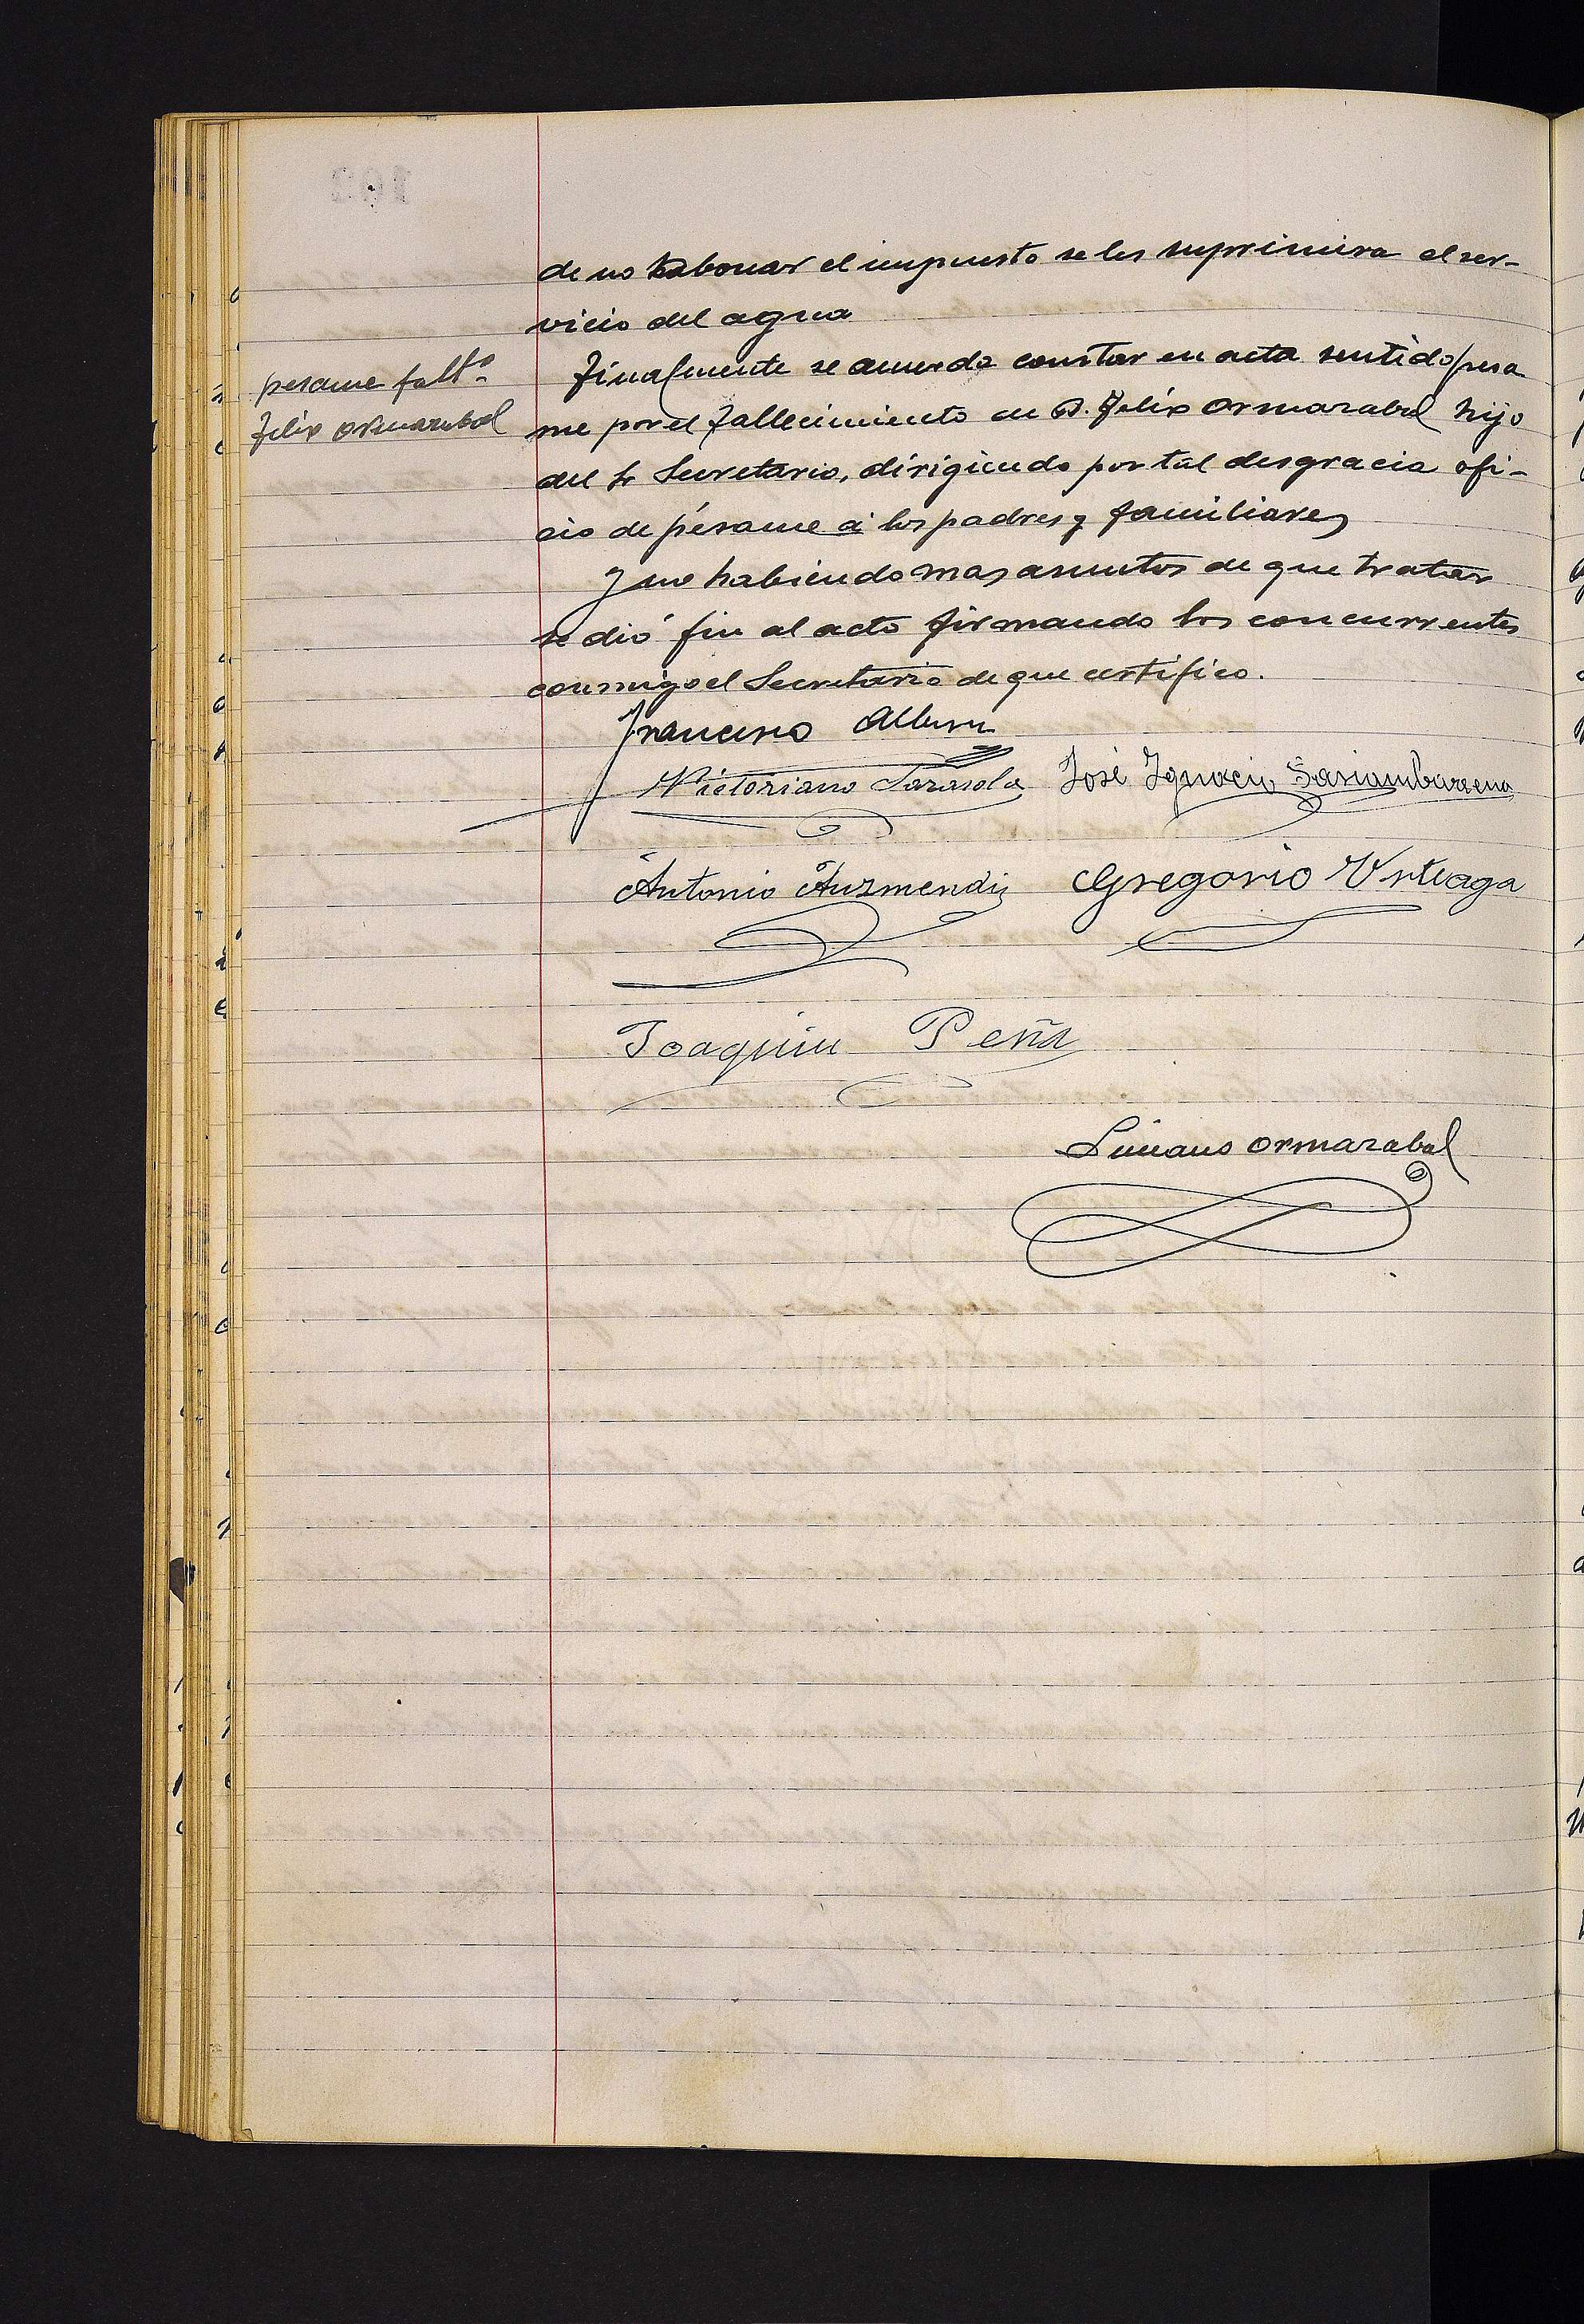 de no abonar el impuesto se les suprimira el ser-
vicio del agua
pesame fallto
Felix Ormazabal
Finalmente se acuerda constar en acta sentido pesa
me por el fallecimiento de D. Felix Ormazabal hijo
del Sr Secretario, dirigiendo por tal desgracia ofi-
cio de pésame á los padres y familiares
Y no habiendo mas asuntos de que tratar
se dió fin al acto firmando los concurrentes
conmigo el Secretario de que certifico.
Francisco
Victoriano Tarasola José Ignacio Sasiambarrena
Antonio Auzmendi Gregorio Urteaga
Joaquin Peña
Ormazabal